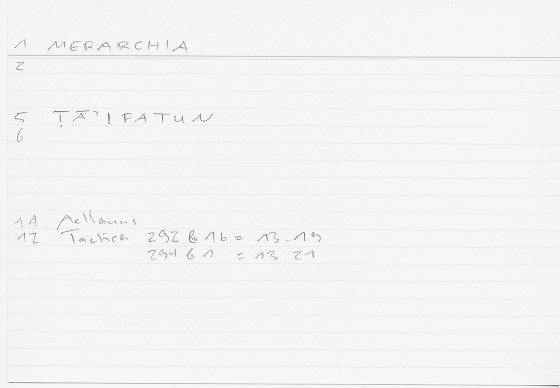 1 MERARCHIA
2
5 ṬĀʾIFATUN
6
11 Aelianus
12 Tactica 292 b 16 = 13.19
294 b 1 = 13.21